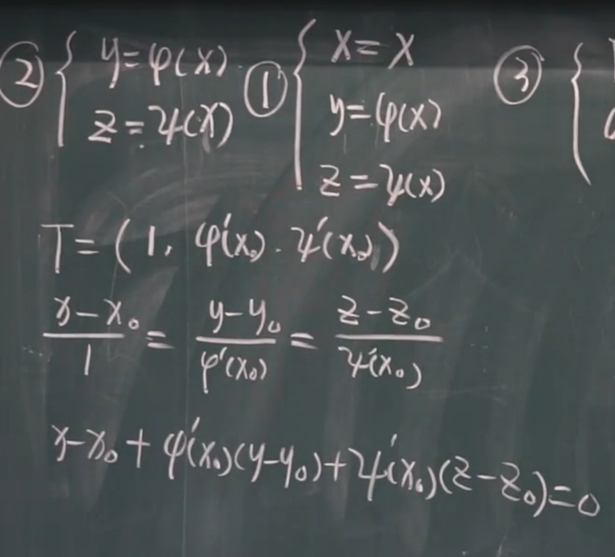 ② { y=φ(x) ① { x=x ③ {
z=ψ(x) y=φ(x)
z=ψ(x)
T=(1, φ'(x₀), ψ'(x₀))
(x-x₀)/1 = (y-y₀)/φ'(x₀) = (z-z₀)/ψ'(x₀)
x-x₀+φ'(x₀)(y-y₀)+ψ'(x₀)(z-z₀)=0